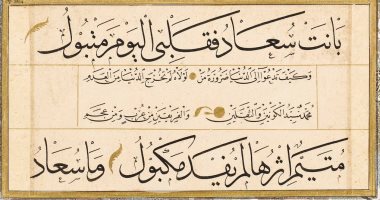 بانت سعاد فقلبي اليوم متبول
وكيف تدعو إلى الدنيا ضرورة من لولاه لم تخرج الدنيا من العدم
محمد سيد الكونين والثقلين والفريقين من عرب ومن عجم
متيم إثرها لم يفد مكبول وما سعاد